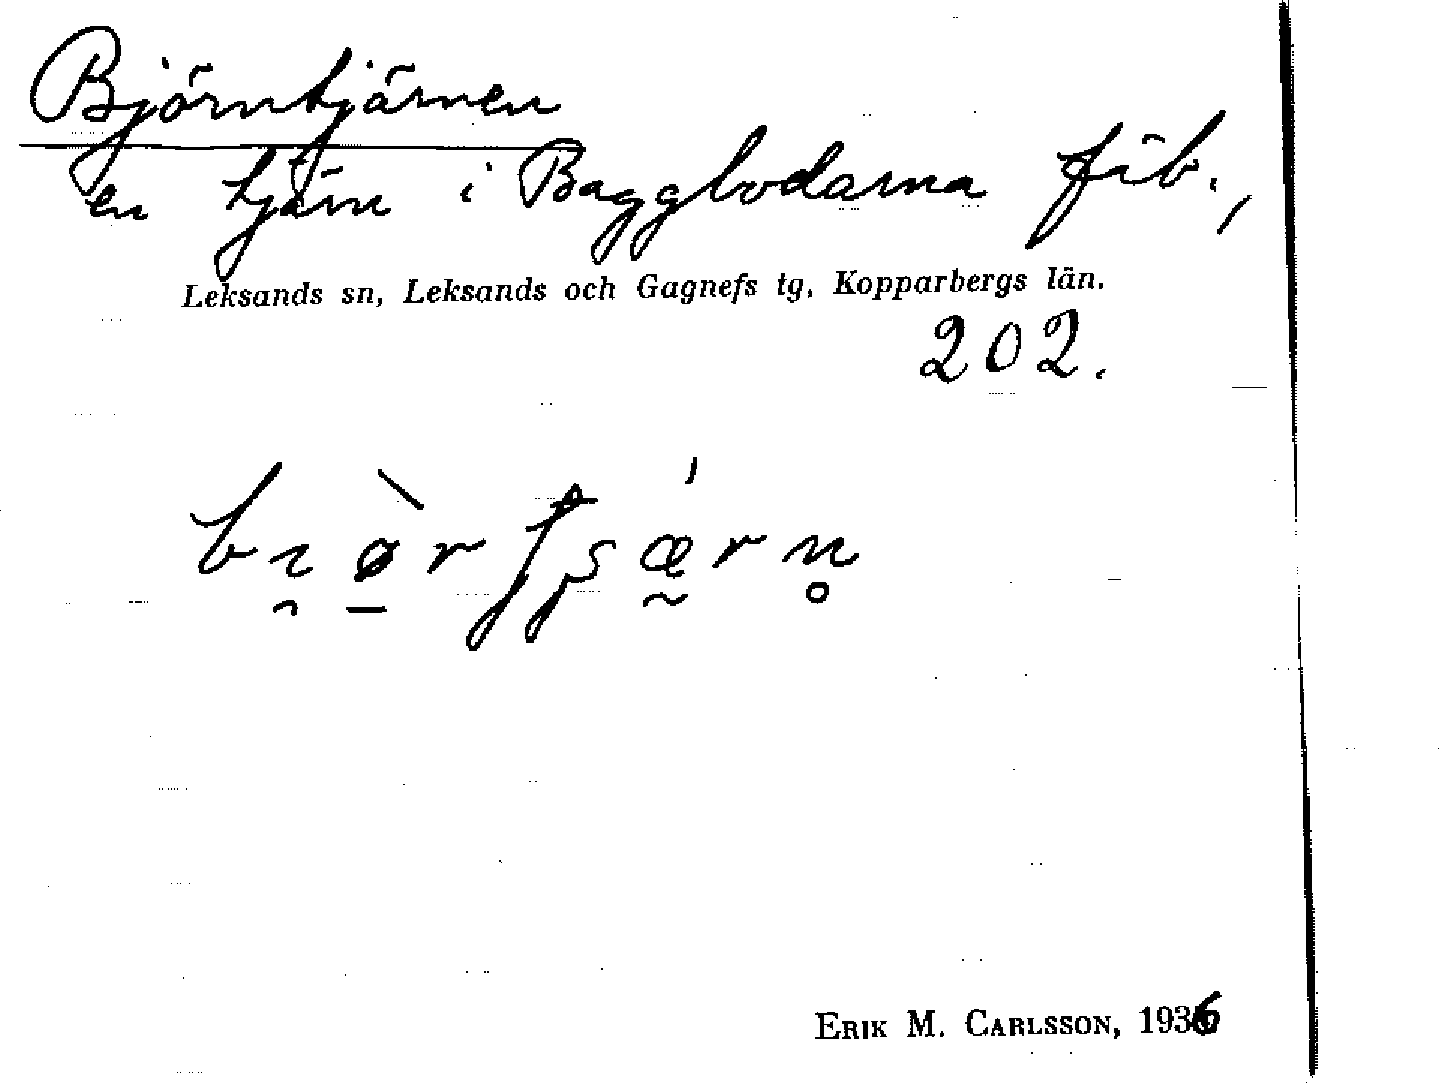 Björntjärnen
en tjärn i Baggbodarna fäb.,
Leksands sn, Leksands och Gagnefs tg, Kopparbergs län.
202.
ERIK M. CARLSSON, 1936